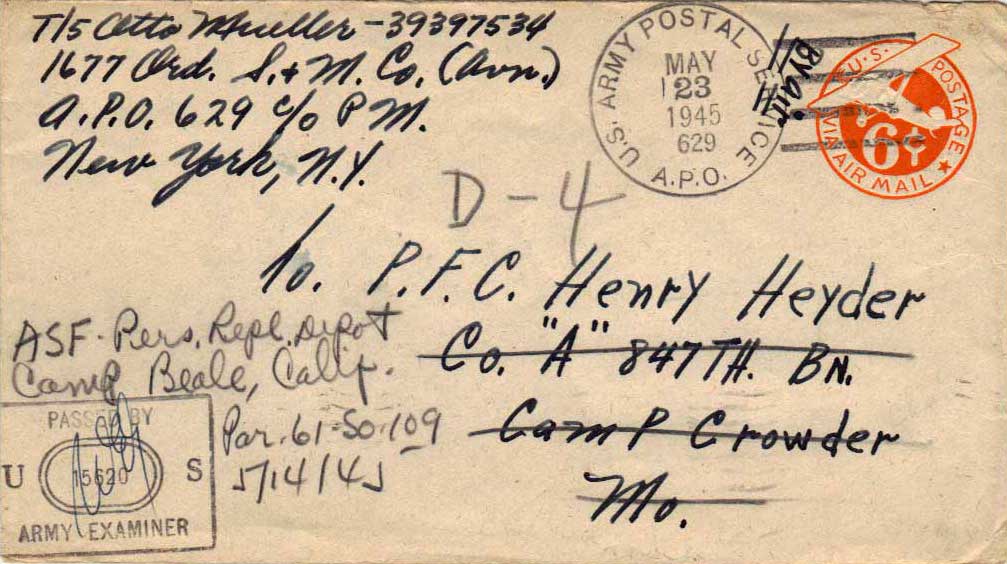 T/5 Otto Mueller - 39397534
1677 Ord. S. + M. Co. (Avn.)
A.P.O. 629 c/o P.M.
New York, N.Y.
U.S. ARMY POSTAL SERVICE
MAY
23
1945
629
A.P.O.
By air
U.S. POSTAGE
6¢
VIA AIR MAIL
D-4
To. P.F.C. Henry Heyder
Co. "A" 847TH. BN.
Camp Crowder
Mo.
ASF. Pers. Repl. Depot
Camp Beale, Calif.
Par. 61-SO-109
5/14/45
PASSED BY
U 15620 S
ARMY EXAMINER